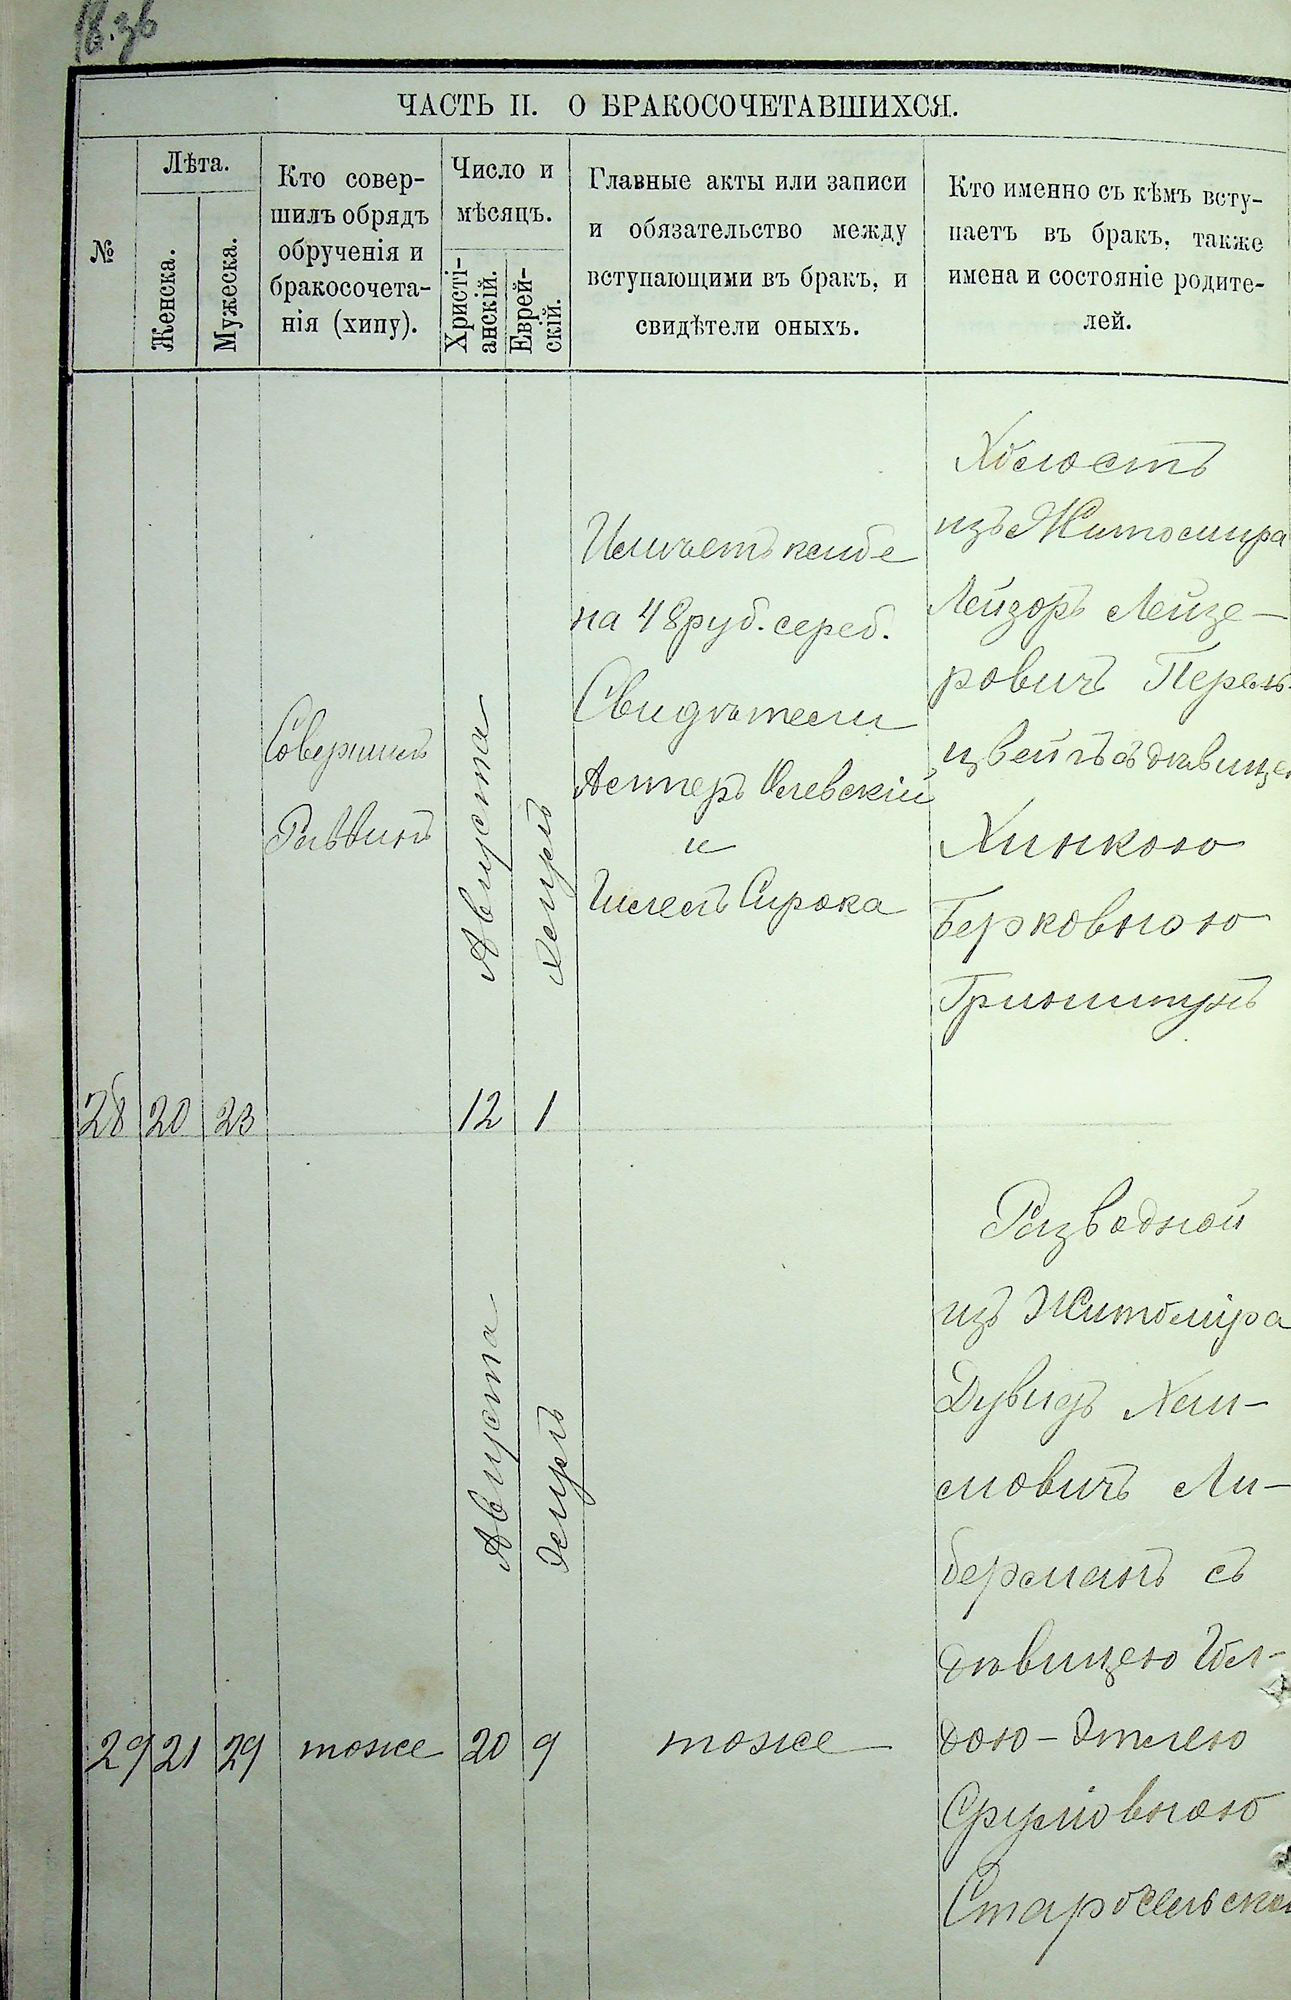 ЧАСТЬ II. О БРАКОСОЧЕТАВШИХСЯ.
№
Лѣта.
Женска.
Мужеска.
Кто совер-
шилъ обрядъ
обрученія и
бракосочета-
нія (хипу).
Число и
мѣсяцъ.
Христі-
анскій.
Еврей-
скій.
Главные акты или записи
и обязательство между
вступающими въ бракъ, и
свидѣтели оныхъ.
Кто именно съ кѣмъ всту-
паетъ въ бракъ, также
имена и состояніе родите-
лей.
28
20
23
Совершилъ
Раввинъ
Августа
12
Элулъ
1
на 48 руб. сереб.
Свидѣтели
Олевскій
и
Сирока
Холостъ
изъ Житомира
Лейзоръ Лейзе-
ровичъ Перель-
цвейгъ съ дѣвицею
Хинкою
Берковною
Гринштунъ
29
21
29
тоже
Августа
20
Элулъ
9
тоже
Разводной
изъ Житоміра
Дувидъ Хаи-
мовичъ Ли-
берманъ съ
дѣвицею Гол-
дою-Этлею
Сруліовною
Старосельской